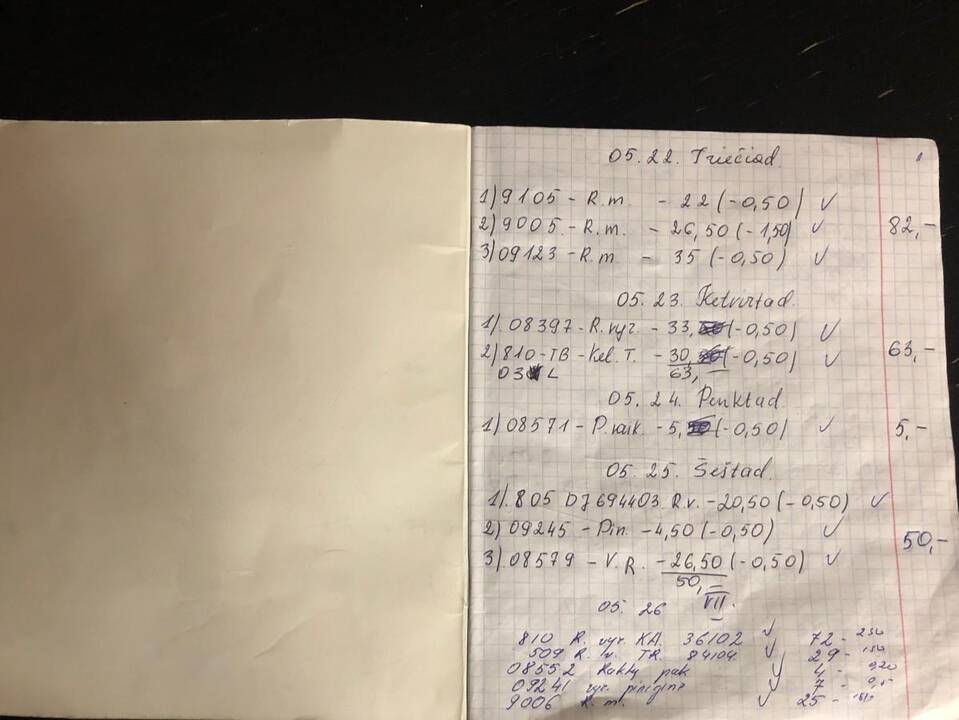 05.22. Trečiad.
1) 9105 - R.m. - 22 (-0,50) ✓
2) 9005 - R.m. - 26,50 (-1,50) ✓ 82,-
3) 09123 - R.m. - 35 (-0,50) ✓
05.23. Ketvirtad.
1). 08397 - R.vyr. - 33, (-0,50) ✓
2) 810-TB - Kel. T. - 30, (-0,50) ✓ 63,-
03 L 63,-
05.24. Penktad.
1) 08571 - P.vaik. - 5, (-0,50) ✓ 5,-
05.25. Šeštad.
1). 805 DJ694403 R.v. - 20,50 (-0,50) ✓
2) 09245 - Pin. - 4,50 (-0,50) ✓ 50,-
3). 08579 - V.R. - 26,50 (-0,50) ✓
50,-
05.26 VII.
810 R. vyr. KA. 36102 ✓ 72 -
509 R. v. TR. 84104. ✓ 29 -
08552 pak ✓ 4 - 0,20
09241 vyr. ✓ 7 -
9006 R.m. ✓ 25 -